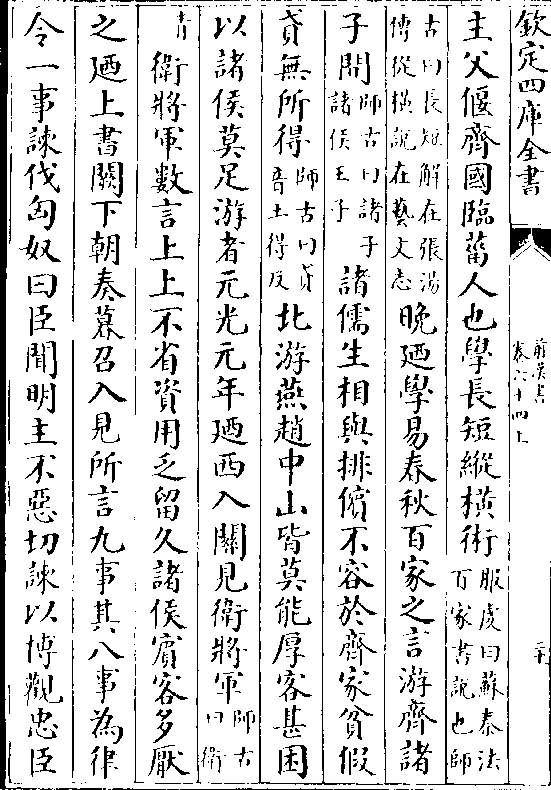 欽定四庫全書
前漢書
卷六十四上
主父偃齊國臨菑人也學長短縱橫術服虔曰蘇秦法百家書說也師
古曰長短解在張湯傳從横說在藝文志晚廼學易春秋百家之言游齊諸
子間師古曰諸子諸侯王子諸儒生相與排儐不容於齊家貧假
貣無所得師古曰貣音土得反北游燕趙中山皆莫能厚客甚困
以諸侯莫足游者元光元年廼西入關見衛將軍師古曰衛
青衛將軍數言上上不省資用乏留久諸侯賓客多厭
之廼上書闕下朝奏暮召入見所言九事其八事為律
令一事諫伐匈奴曰臣聞明主不惡切諫以博觀忠臣